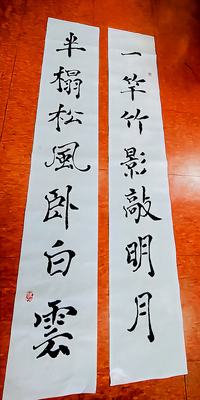 一竿竹影敲明月
半榻松風卧白雲